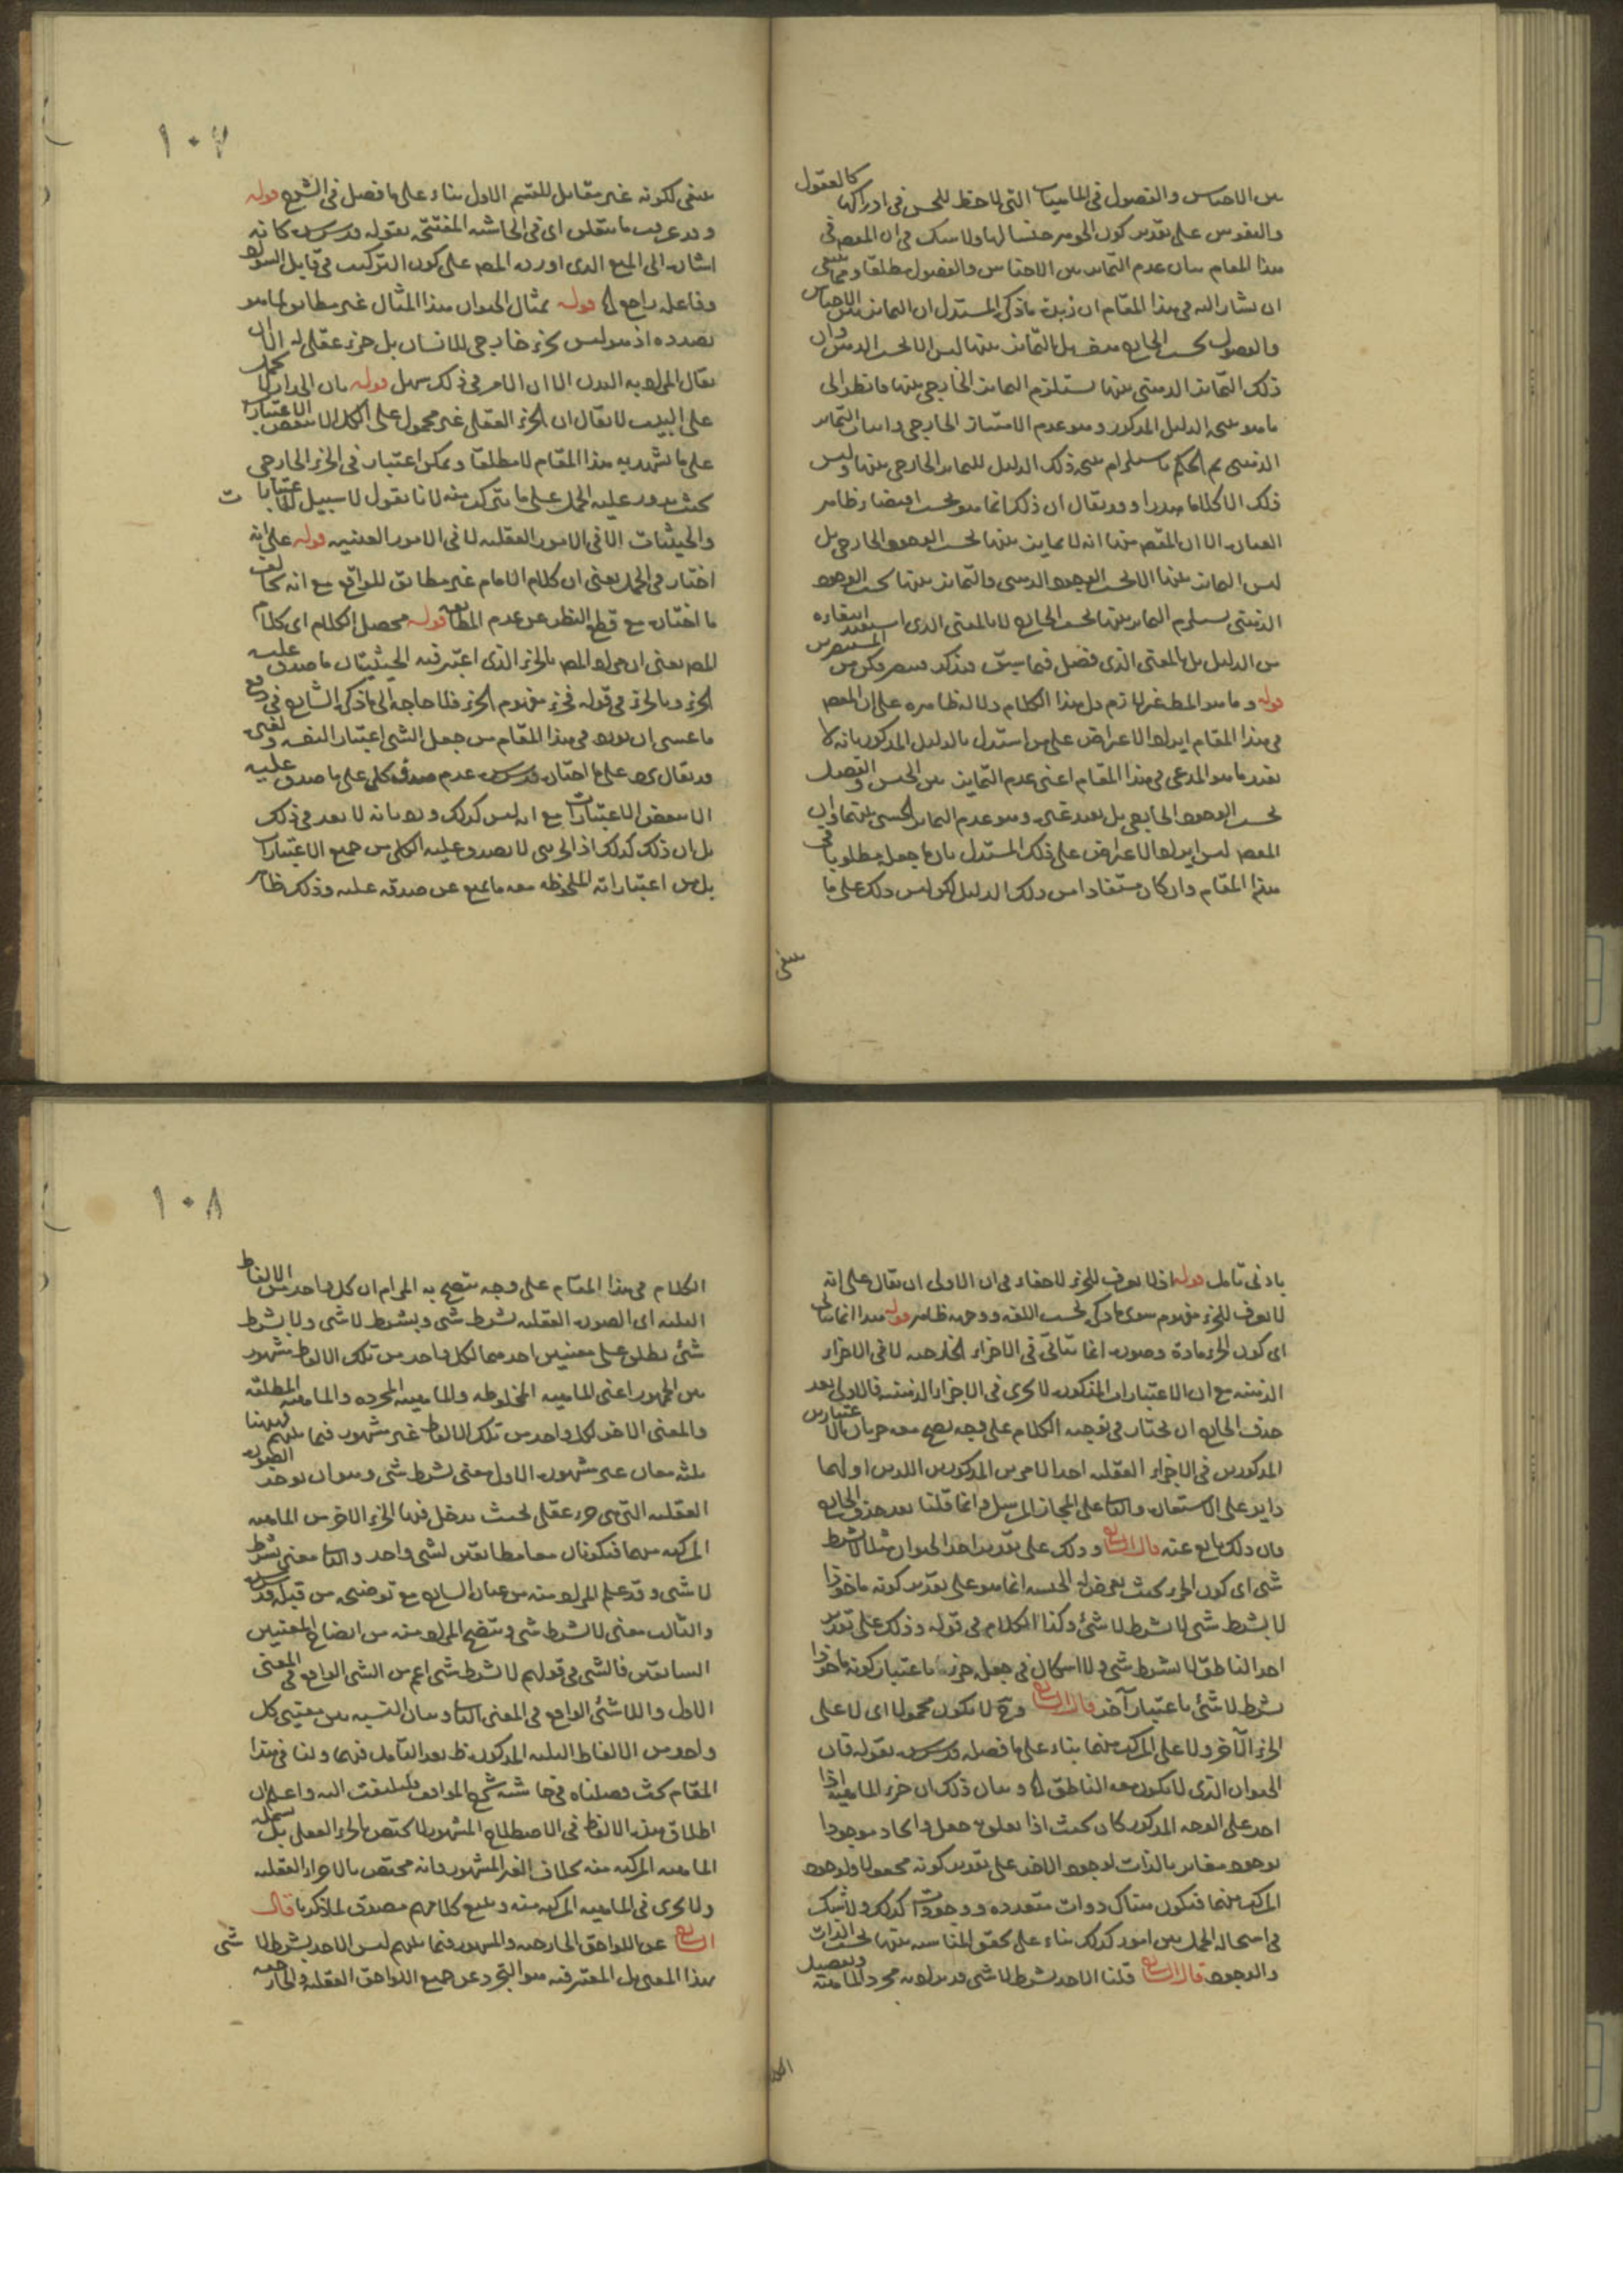 بين الاجناس والفصول في الماهيات التي لاحظ للحس في ادراكها كالعقول
والنفوس على تقدير كون الجوهر جنسا لها ولا شك في ان المقصم في
هذا المقام بيان عدم التمايز بين الاجناس والفصول مطلقا ومما ينبغي
ان يشار اليه في هذا المقام ان زبدة ما ذكره المستدل ان التمايز بين الاجناس
والفصول بحسب الخارج بل التمايز بينها ليس الا بحسب الذهن وان
ذلك التمايز الذهني بينها يستلزم التمايز الخارجي بينها فانظر الى
ما هو نتيجة الدليل المذكور وهو عدم الامتياز الخارجي واثبات التمايز
الذهني ثم الحكم باستلزام نتيجة ذلك الدليل للتمايز الخارجي بينها وليس
ذلك الا كلاما وقد يقال ان ذلك انما هو بحسب اقتضاء ظاهر
العبارة الا ان المقصم منها انه لا تمايز بينها بحسب الوجود الخارجي بل
ليس التمايز بينها الا بحسب الوجود الذهني والتمايز بينها بحسب الوجود
الذهني يستلزم التمايز بينها بحسب الخارج لا بالمعنى الذي استفاده
من الدليل بل بالمعنى الذي فصل فيما سبق فتذكر وتبصر وكن من المستبصرين
قوله وما هو المط غير لازم دل هذا الكلام دلالة ظاهرة على ان المقصم
في هذا المقام ايراد الاعتراض على من استدل بالدليل المذكور بانه لا
يفيد ما هو المدعى في هذا المقام اعني عدم التمايز بين الجنس والفصل
بحسب الوجود الخارجي بل يفيد غيره وهو عدم التمايز الحسي بينهما وان
المقصم ليس ايراد الاعتراض على ذلك المستدل بان ما جعله مطلوبا في
هذا المقام وان كان مستفادا من ذلك الدليل لكن ليس ذلك على ما
ينبغي
١٠٧
ينبغي لكونه غير مقابل للقسم الاول بناء على ما فصل في الشرح قوله
وقد عرفت ما يتعلق اى في الحاشية المفتتحة بقوله قدس سره كانه
اشارة الى المنع الذى اورده المصم على كون التركيب في قابل السواد
وفاعله راجع اه قوله تمثال الحيوان هذا المثال غير مطابق لما هو
بصدده اذ هو ليس بجزء خارجي للانسان بل جزء عقلي له الا ان
يقال المراد به البدن الا ان الامر في ذلك سهل قوله بان الجدار لا يحمل
على البيت لا يقال ان الجزء العقلي غير محمول على الكل الا ببعض الاعتبارات
على ما يشهد به هذا المقام لا مطلقا ويمكن اعتبار في الجزء الخارجي
بحيث يدور عليه الحمل على ما يتركب منه لانا نقول لا سبيل للاعتبارات
والحيثيات الا في الامور العقلية لا في الامور العينية قوله على انه
اختار في الحمل يعنى ان كلام الامام غير مطابق للواقع مع انه يخالف
ما اختاره مع قطع النظر عن عدم المطابقة قوله محصل الكلام اى كلام
المصم يعنى ان مراد المصم بالجزء الذى اعتبر فيه الحيثيتان ما صدق عليه
الجزء وبالجزء في قوله فجزء مفهوم الجزء فلا حاجة الى ما ذكره الشارح في دفع
ما عسى ان يورد في هذا المقام من جعل الشئ اعتبارا لنفسه ولغيره
وقد يقال يرد على ما اختاره قدس سره عدم صدق كلي على ما صدق عليه
الا ببعض الاعتبارات مع انه ليس كذلك ورد بانه لا بعد في ذلك
بل ان ذلك كذلك اذ الجزئي لا يصدق عليه الكلي من جميع الاعتبارات
بل من اعتباراته الملحوظة معه ما يمنع عن صدقه عليه وذلك ظاهر
بادنى تأمل قوله اذ لا يعرف للجزء لا خفاء في ان الاولى ان يقال على انه
لا يعرف للجزء مفهوم سوى ما ذكر بحسب اللغة ووجهه ظاهر قوله هذا انما يتأتى
اى كون الجزء مادة وصورة انما يتأتى في الاجزاء الخارجية لا في الاجزاء
الذهنية مع ان الاعتبارات المذكورة لا تجرى في الاجزاء الذهنية فالاولى بعد
حذف الخارج ان يختار في توجيه الكلام على وجه يصح معه جريان الاعتبارين
المذكورين في الاجزاء العقلية احد الامرين المذكورين اللذين اولهما
دائر على الاستعارة والثاني على المجاز المرسل وانما قلنا بعد حذف الخارج
فان ذلك مانع عنه قال الشارح وذلك على تقدير اخذ الحيوان مثلا لا بشرط
شئ اى كون الجزء بحيث يعرض له الجنسية انما هو على تقدير كونه ماخوذا
لا بشرط شئ لا بشرط لا شئ وكذا الكلام في قوله وذلك على تقدير
اخذ الناطق لا بشرط شئ ولا اشكال في جعل جزء باعتبار كونه ماخوذا
بشرط لا شئ باعتبار آخر قال الشارح وح لا يكون محمولا اى لا على
الجزء الآخر ولا على المركب منهما بناء على ما فصله قدس سره بقوله فان
الحيوان الذى لا يكون معه الناطق اه وبيان ذلك ان جزء الماهية اذا
اخذ على الوجه المذكور كان بحيث اذا تعلق به جعل وايجاد موجودا
بوجود مغاير بالذات لوجود الآخر على تقدير كونه مجعولا ولوجود
المركب منهما فيكون هناك ذوات متعددة ووجودات كذلك ولا شك
في استحالة الحمل بين امور كذلك بناء على تحقق المنافاة بينها بحسب الذات
والوجود قال الشارح قلنا الاخذ بشرط لا شئ قد يراد به مجرد الماهية وتفصيل
١٠٨
الكلام في هذا المقام على وجه يتضح به المرام ان كل واحد من الالفاظ
الثلثة اى الصورة العقلية بشرط شئ وبشرط لا شئ ولا بشرط
شئ يطلق على معنيين احدهما لكل واحد من تلك الالفاظ مشهور
بين الجمهور اعنى الماهية المخلوطة والماهية المجردة والماهية المطلقة
والمعنى الآخر لكل واحد من تلك الالفاظ غير مشهور فيما بينهم فههنا
ثلثة معان غير مشهورة الاول معنى بشرط شئ وهو ان يوخذ الصورة
العقلية التى هى جزء عقلى بحيث يدخل فيها الجزء الآخر من الماهية
المركبة منهما فيكونان معا مطابقين لشئ واحد والثاني معنى بشرط
لا شئ وقد علم المراد منه من عبارة الشارح مع توضيحه من قبله قدس سره
والثالث معنى لا بشرط شئ ويتضح المراد منه من ايضاح المعنيين
السابقين فالشئ في قولهم لا بشرط شئ اعم من الشئ الواقع في المعنى
الاول واللا شئ الواقع في المعنى الثاني وبيان النسبة بين معنيي كل
واحد من الالفاظ الثلثة المذكورة ظ بعد التأمل فيهما ولنا في هذا
المقام بحث فصلناه في حاشية شرح المواقف فليلتفت اليه واعلم ان
اطلاق هذه الالفاظ في الاصطلاح المشهور لا يختص بالجزء العقلي بل يشمل
الماهية المركبة منه بخلاف الغير المشهور فانه مختص بالاجزاء العقلية
ولا يجرى في الماهية المركبة منه وتتبع كلامهم مصدق لما ذكرنا قال
الشارح عن اللواحق الخارجية والمشهور فيما بينهم ليس الاخذ بشرط لا شئ
بهذا المعنى بل المعتبر فيه هو التجرد عن جميع اللواحق العقلية والخارجية